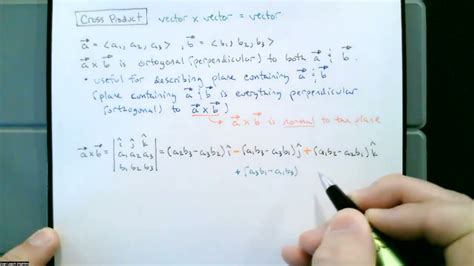 Cross Product vector x vector = vector
a⃗ = <a₁, a₂, a₃>, b⃗ = <b₁, b₂, b₃>
a⃗ x b⃗ is ortogonal (perpendicular) to both a⃗ & b⃗.
• useful for describing plane containing a⃗ & b⃗
(plane containing a⃗ & b⃗ is everything perpendicular
(orthogonal) to a⃗ x b⃗)
↳ a⃗ x b⃗ is normal to the plane
a⃗ x b⃗ = | î ĵ k̂ | = (a₂b₃ - a₃b₂) î - (a₁b₃ - a₃b₁) ĵ + (a₁b₂ - a₂b₁) k̂
a₁ a₂ a₃
b₁ b₂ b₃
+ (a₃b₁ - a₁b₃)